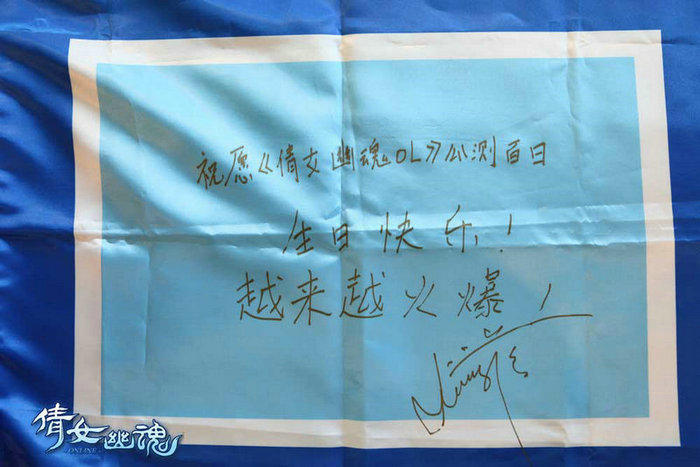 祝愿《倩女幽魂OL》公测百日
生日快乐!
越来越火爆!
倩女幽魂
ONLINE